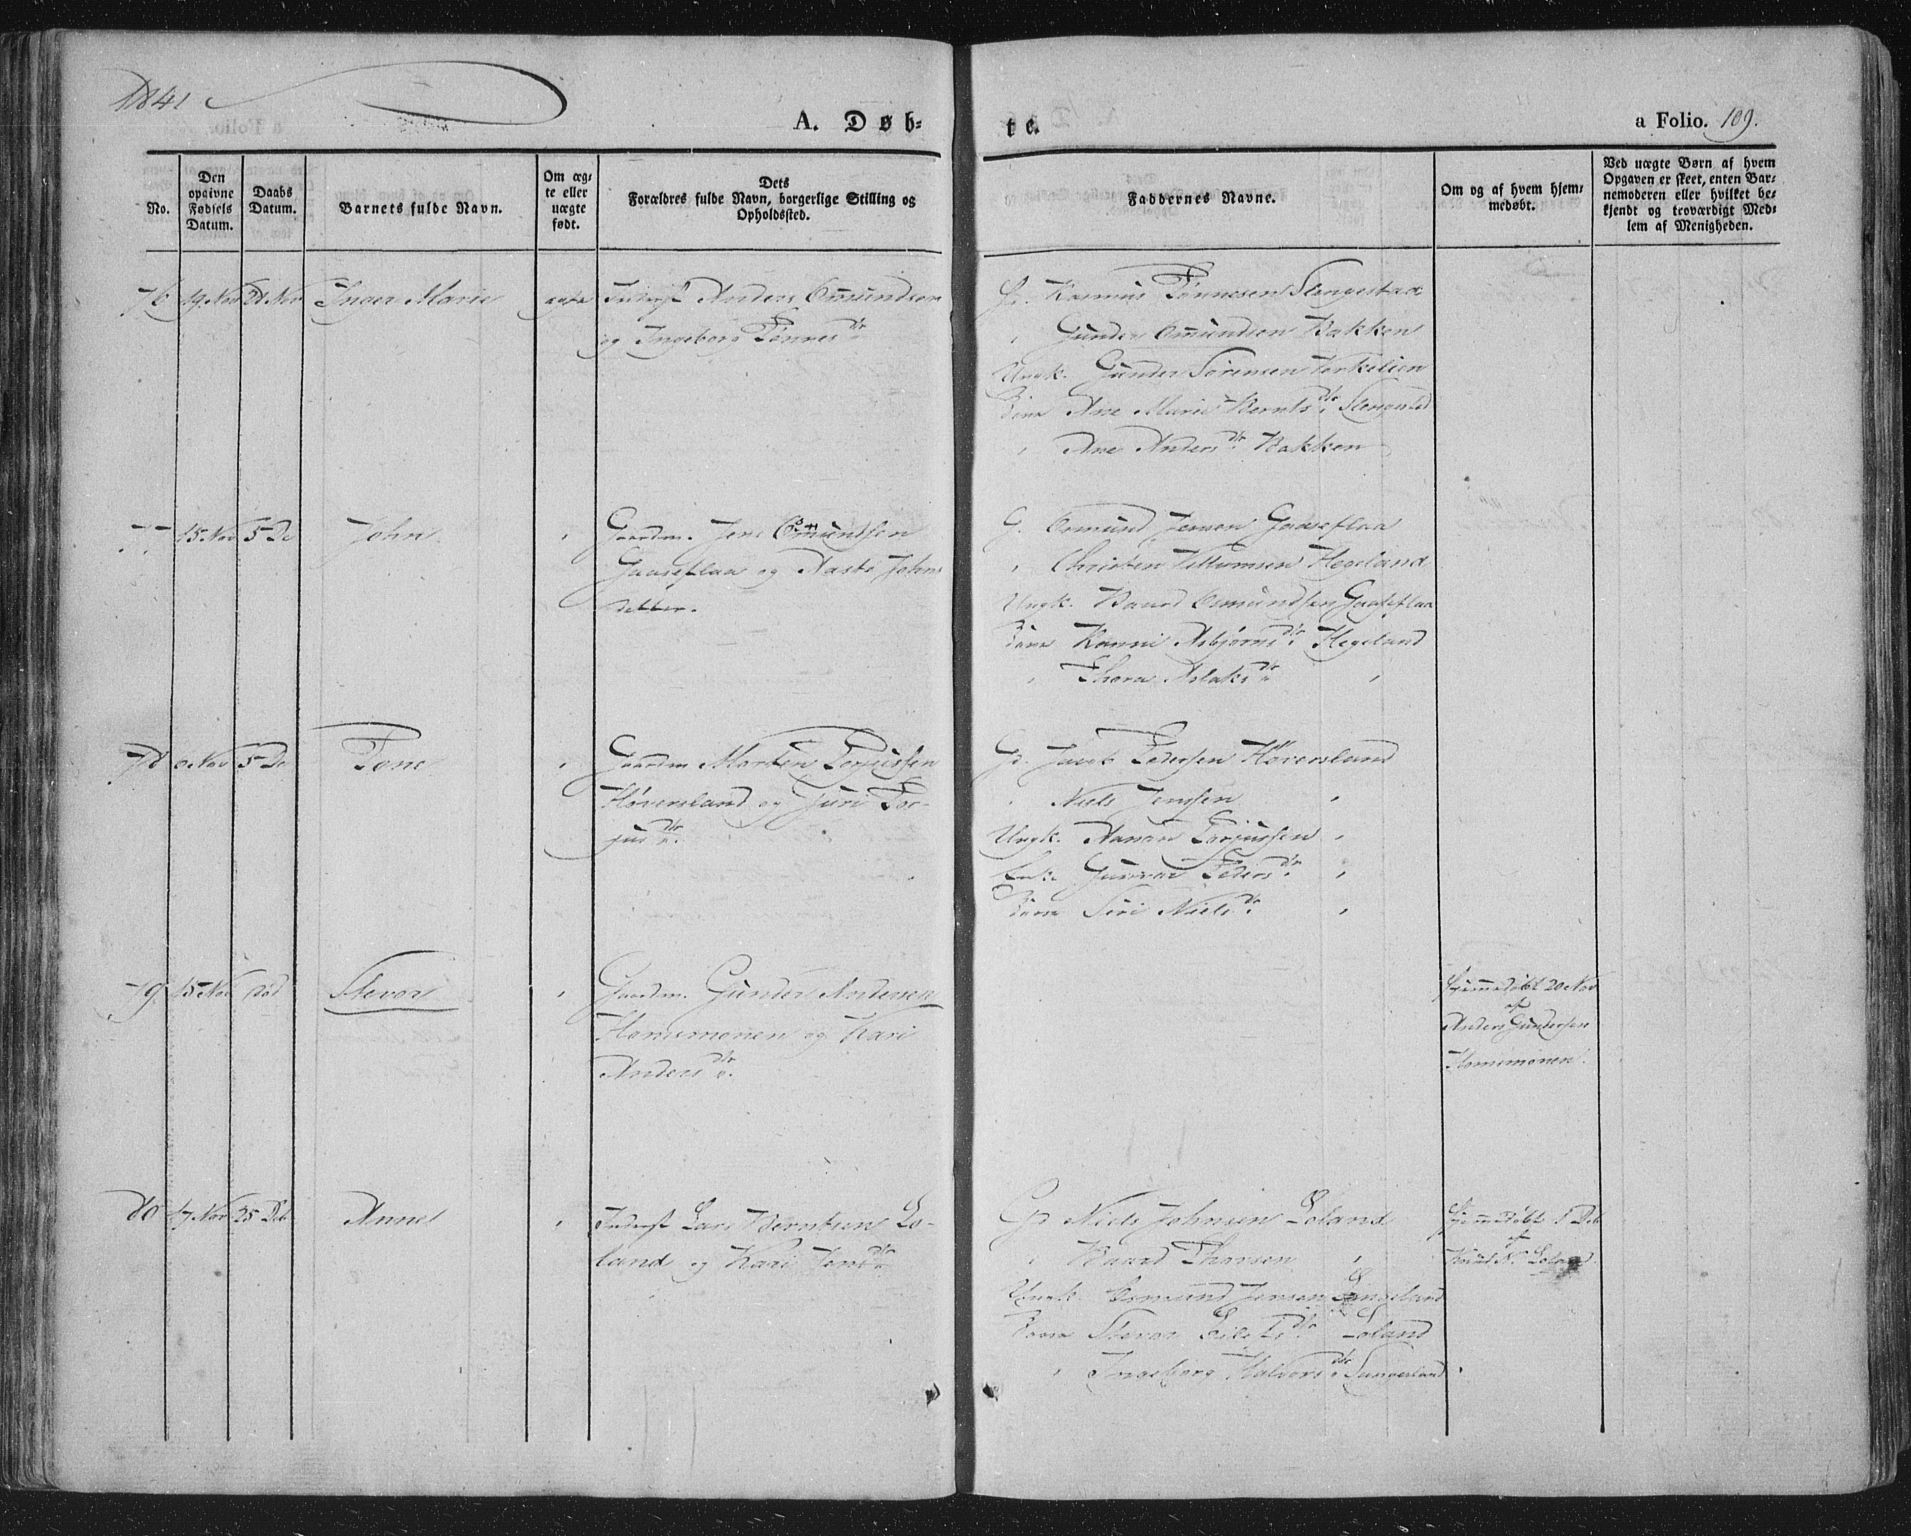 1841
A. Døb-
te.
a Folio. 109.
No.
Den opgivne Fødsels Datum.
Daabs Datum.
Barnets fulde Navn.
Om ægte eller uægte født.
Dets Forældres fulde Navn, borgerlige Stilling og Opholdssted.
Faddernes Navne.
Om og af hvem hjemmedøbt.
Ved uægte Børn af hvem Opgaven er skeet, enten Barnemoderen eller hvilket bekjendt og troværdigt Medlem af Menigheden.
76 19 Nov 21 Nov Inger Marie ægte Inderst Anders Omundsen
og Ingeborg Tønnesdr.
G. Rasmus Tønnesen Stengestad
" Gunder Omundsen Bakken
Ungk. Gunder Sørensen Verkelien
Kone Ane Marie Berntsdr.
" Ane Andersdr. Bakken
77 15 Nov 5 De John " Gaardm. Jens Osmundsen
Gaaseflaa og Aaste Johns
datter.
G. Osmund Jensen Gaaseflaa
" Christen Hegeland
Ungk. Baard Osmundsen Gaaseflaa
Kone Asbjørnsdr. Hegeland
" Thora Aslaksdr. "
78 Nov 5 De Tone " Gaardm Morten Torjussen
Høversland og Guri Tor-
jusdr.
Gd. Jacob Pedersen Høversland
" Niels Jensen "
Ungk. Aanon Torjussen "
Enke Gunvor Pedersdr. "
Kone Siri Nielsdr. "
79 15 Nov død Stevor " Gaardm. Gunder Andersen
Homsmonen og Kari
Andersdr.
Hjemmedøbt 20 Nov
af
Anders Gundersen
Homsmonen.
80 17 Nov 25 Deb Anne " Inderst Lars Berntsen Lo-
land og Kari Jensdr.
Gd Niels Johnsen Loland
" Baard Thorsen "
Ungk. Osmund Jensen Langeland
Kone Stevor Loland
" Ingeborg Halvorsdr.
Hjemmedøbt 1 Deb
af
Knud N. Loland